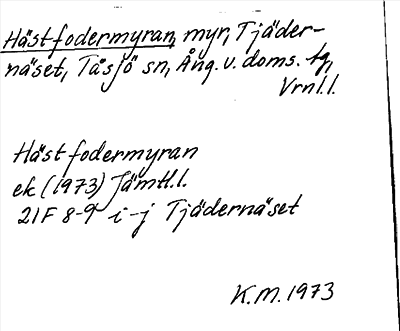 Hästfodermyran, myr, Tjäder-
näset, Tåsjö sn, Ång. v. doms. tg,
Vrnl.l.
Hästfodermyran
ek (1973) Jämtl.l.
21F 8-9 i-j Tjädernäset
K.M. 1973